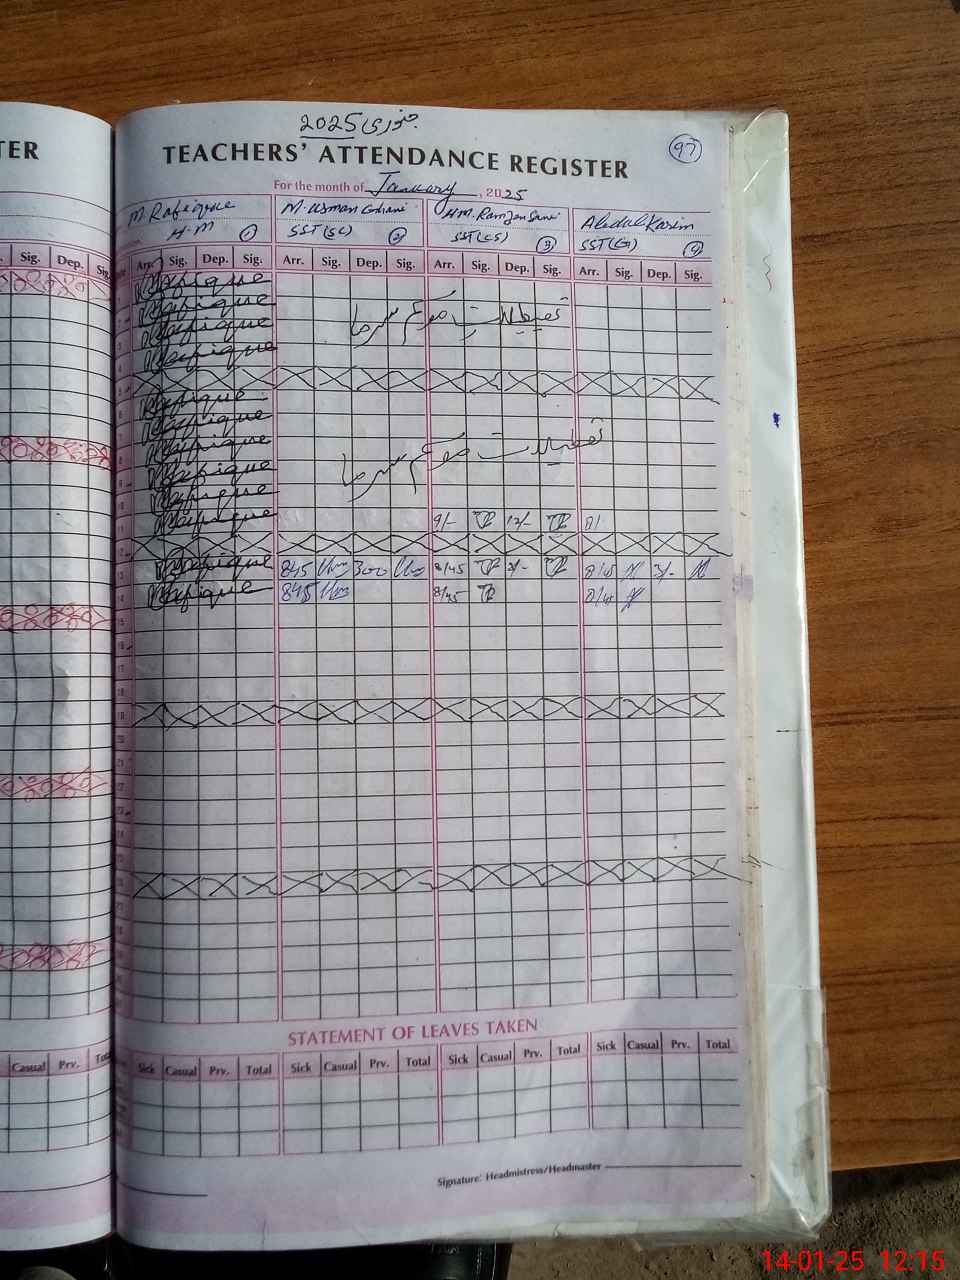 2025 جنوری
TEACHERS' ATTENDANCE REGISTER
97
For the month of January, 2025
M. Rafique
H.M 1
M. Usman Ghani
SST(SC) 2
H.M. Ramzan Sani
SST(CS) 3
Abdul Karim
SST(G) 4
Arr. Sig. Dep. Sig. Arr. Sig. Dep. Sig. Arr. Sig. Dep. Sig. Arr. Sig. Dep. Sig.
Rafique
Rafique
Rafique
تعطیلات موسم سرما
Rafique
Rafique
Rafique
Rafique
تعطیلات موسم سرما
Rafique
Rafique
Rafique 9/- 12/- 8/
Rafique 845 300 8/45 3/- 8/45 3/-
Rafique 845 8/45 8/45
15
16
17
18
19
20
STATEMENT OF LEAVES TAKEN
Sick Casual Prv. Total Sick Casual Prv. Total Sick Casual Prv. Total Sick Casual Prv. Total
Signature: Headmistress/Headmaster
TER
Sig. Dep. Sig.
Casual Prv. Total
14-01-25 12:15